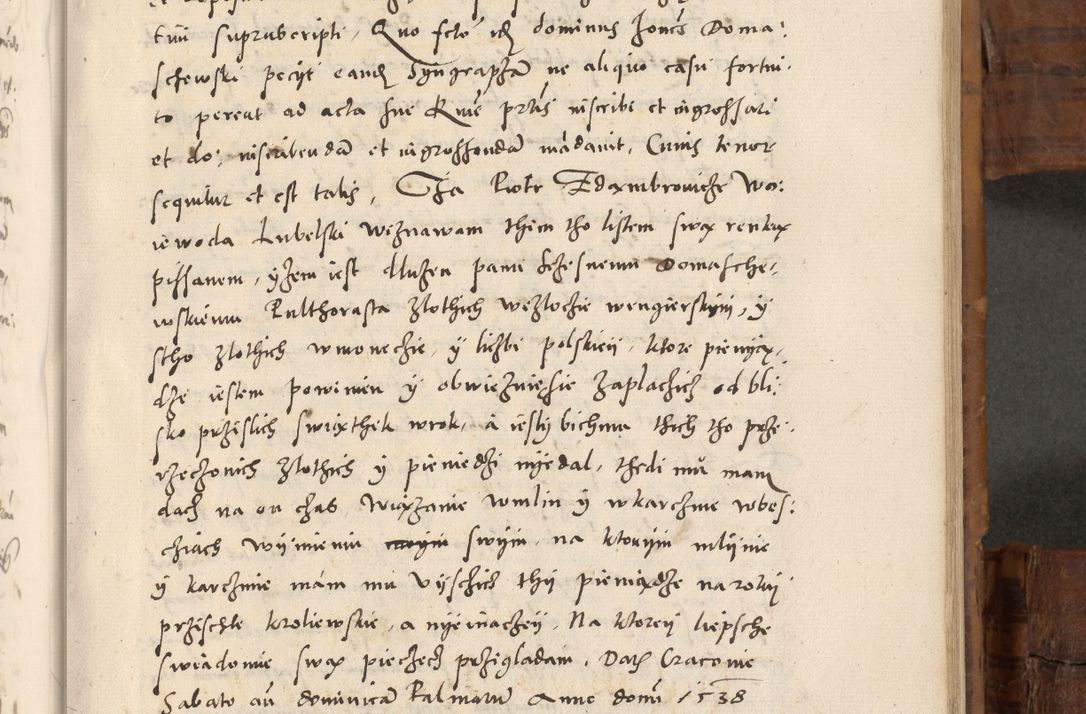 tum suprascripti, Quo fcto idem dominus Joñes Doma:
schewski pecyt eand Syngrapham ne aliquo casu fortui:
to pereat ad acta sue Rme prtis inscribi et ingrossari
et do: inscribendã et ingrossandã mãdavit, Cuius tenor
sequitur et est talis, Ya Piotr Zdąmbroviche Wo:
iewoda Lubelski wez̃nawam them tho listem swą renką
pissanem, yzem iest dluzen panu Sczesnemu Domasche:
wskiemu Pulthorasta zlothich wezlocie wengierskym, y
stho zlothich wmonecie, y liczbi polskiey, ktore pienią:
dze iestem powinien y obwiezuiesie zaplachicz od bli:
sko przeslich swiąthek wrok, a iesly bichmu thich tho prze:
rzeczonich zlothich y pieniedzi nyedal, thedi mu mam
dacz na on czas wiązanie wmlin y wkarczme wbes:
ciach wymieniu swym, na ktorym mlynie
y karczmie mam mu vyscicz thy pieniądze na roky
przeschle kroliewskie, a nyeinaczey, Na ktorey liepsche
swiadomie swą pieczecz przigladam, Dat Cracovie
Sabato añ dominicã Palmarum Anno domi 1538